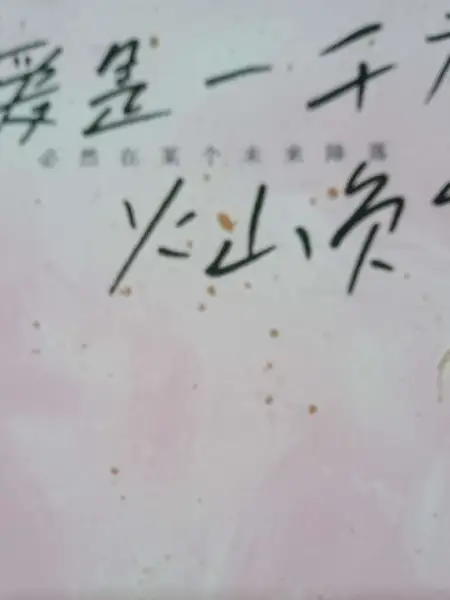 爱是一千
必然在某个未来降落
火山、负